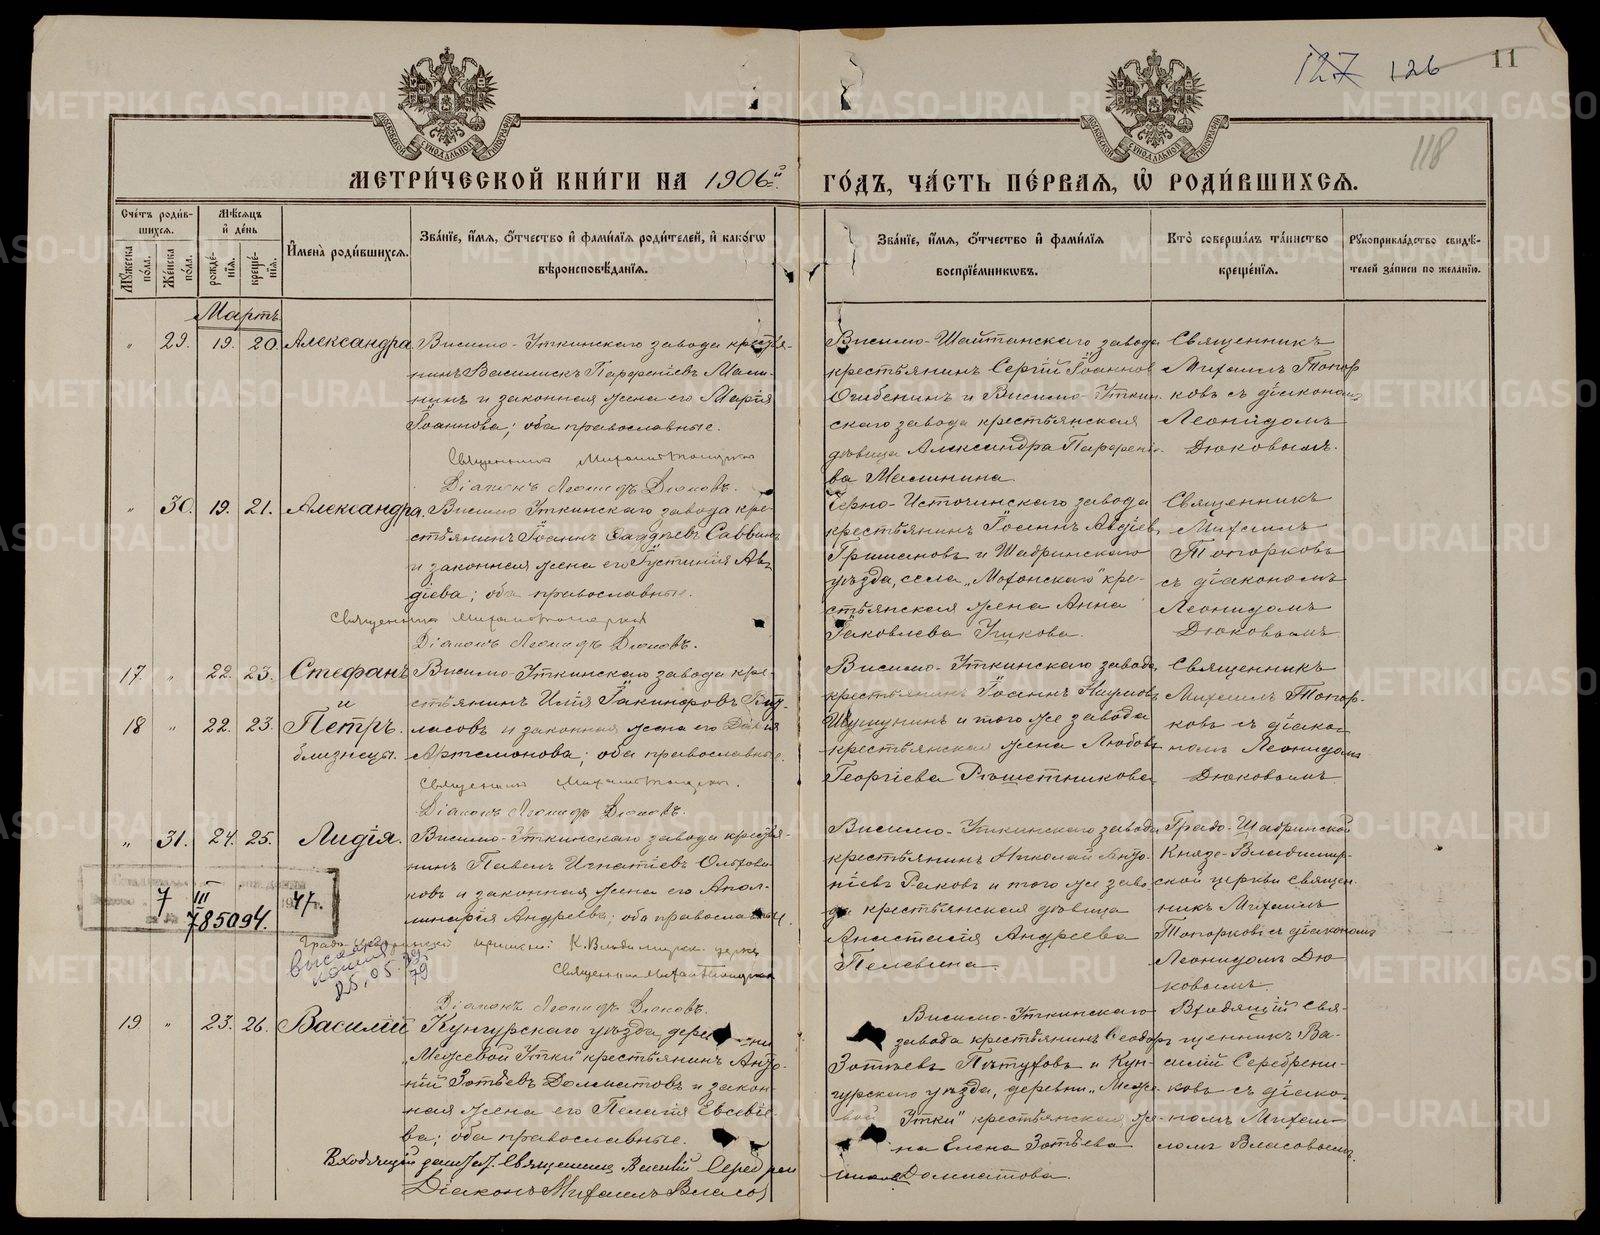 127 126 11
118
МЕТРИ́ЧЕСКОЙ КНИ́ГИ НА 1906й ГО́ДЪ, ЧА́СТЬ ПЕ́РВАЯ, Ѡ РОДИ́ВШИХСЯ.
Сче́тъ роди́вшихся.
Мѣ́сяцъ и де́нь
Мꙋ́жеска по́ла.
Же́нска по́ла.
рожде́нія.
креще́нія.
И́мена роди́вшихся.
Зва́ніе, и́мя, ѻ́тчество и фами́лія роди́телей, и како́гѡ вѣроисповѣ́данія.
Зва́ніе, и́мя, ѻ́тчество и фами́лія воспріе́мникѡвъ.
Кто̀ соверша́лъ та́инство креще́нія.
Рꙋкоприкла́дство свидѣ́телей за́писи по жела́нію.
Мартъ
" 29. 19. 20. Александра
Висимо-Уткинскаго завода крестья-
нинъ Василискъ Парфеніевъ Мали-
нинъ и законная жена его Марія
Іоаннова; оба православные.
Священникъ Михаилъ Топорковъ
Діаконъ Леонидъ Дюковъ.
Висимо-Шайтанскаго завода
крестьянинъ Сергій Іоаннов
Огибенинъ и Висимо-Уткин-
скаго завода крестьянская
дѣвица Александра Парфеніе-
ва Малинина
Священникъ
Михаилъ Топор
ковъ съ діакономъ
Леонидомъ
Дюковымъ.
" 30. 19. 21. Александра.
Висимо Уткинскаго завода кре-
стьянинъ Іоаннъ Фаддѣевъ Саввинъ
и законная жена его Іустинія Ав-
діева; оба православные.
Священникъ Михаилъ Топорковъ
Діаконъ Леонидъ Дюковъ.
Черно-Источинскаго завода
крестьянинъ Іоаннъ Авдіев
Гришановъ и Шадринскаго
уѣзда, села „Мохонскаго" кре-
стьянская жена Анна
Іаковлева Ушкова.
Священникъ
Михаилъ
Топорковъ
съ діакономъ
Леонидомъ
Дюковымъ
17. " 22. 23. Стефанъ
и
18 " 22. 23. Петръ.
близнецы.
Висимо-Уткинскаго завода кре-
стьянинъ Илія Іакинфовъ
ласовъ и законная жена его Дарія
Артемонова; оба православные.
Священникъ Михаилъ Топорков.
Діаконъ Леонидъ Дюковъ.
Висимо-Уткинскаго завода
крестьянинъ Іоаннъ Наумовъ
Шушунинъ и того же завода
крестьянская жена Любовь
Георгіева Рѣшетникова
Священникъ
Михаилъ Топор-
ковъ съ діако-
номъ Леонидомъ
Дюковымъ
" 31. 24. 25. Лидія.
Висимо-Уткинскаго завода крестья-
нинъ Павелъ Игнатіевъ Ольхови-
ковъ и законная жена его Апол-
линарія Андреева; оба православные.
Священникъ Михаилъ Топорков
Діаконъ Леонидъ Дюковъ.
Висимо-Уткинскаго завода
крестьянинъ Николай Анто-
ніевъ Раковъ и того же заво-
да крестьянская дѣвица
Анастасія Андреева
Пелевина.
Градо-Шадринской
Князе-Владимир-
ской церкви священ-
никъ Михаилъ
Топорковъ съ діакономъ
Леонидомъ Дю
ковымъ.
7 III 47 г.
785094.
25.05.79
19 " 23. 26. Василій
Кунгурскаго уѣзда, деревни
„Межевой Утки" крестьянинъ Анто-
ній Зотѣевъ Долматовъ и закон-
ная жена его Пелагія Евсвіе-
ва; оба православные.
Входящій Священникъ Василій Серебрен
Діаконъ Михаилъ Власов
Висимо-Уткинскаго
завода крестьянинъ Ѳеодоръ
Зотѣевъ Пѣтуховъ и Кун-
гурскаго уѣзда, деревни „Меже-
вой Утки" крестьянская же-
на Елена Зотѣева
Долматова.
Входящій свя-
щенникъ Ва-
силій Серебрени-
ковъ съ діако-
номъ Михаи-
ломъ Власовымъ.
METRIKI.GASO-URAL.RU